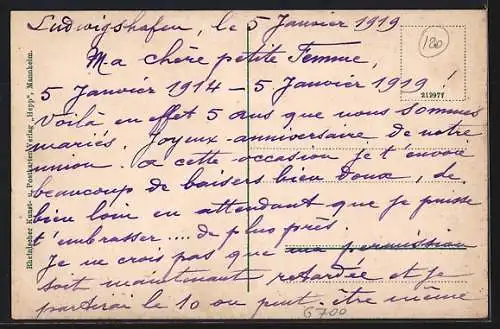 Ludwigshafen, le 5 Janvier 1919
Ma chère petite Femme,
5 Janvier 1914 - 5 Janvier 1919!
Voilà en effet 5 ans que nous sommes
mariés. Joyeux anniversaire de notre
union. A cette occasion je t'envoie
beaucoup de baisers bien doux, de
bien loin en attendant que je puisse
t'embrasser .... de plus près.
Je ne crois pas que ma permission
soit maintenant retardée et je
partirai le 10 ou peut-être même
120
212977
Rheinischer Kunst- u. Postkarten-Verlag „Hepp", Mannheim.
G700